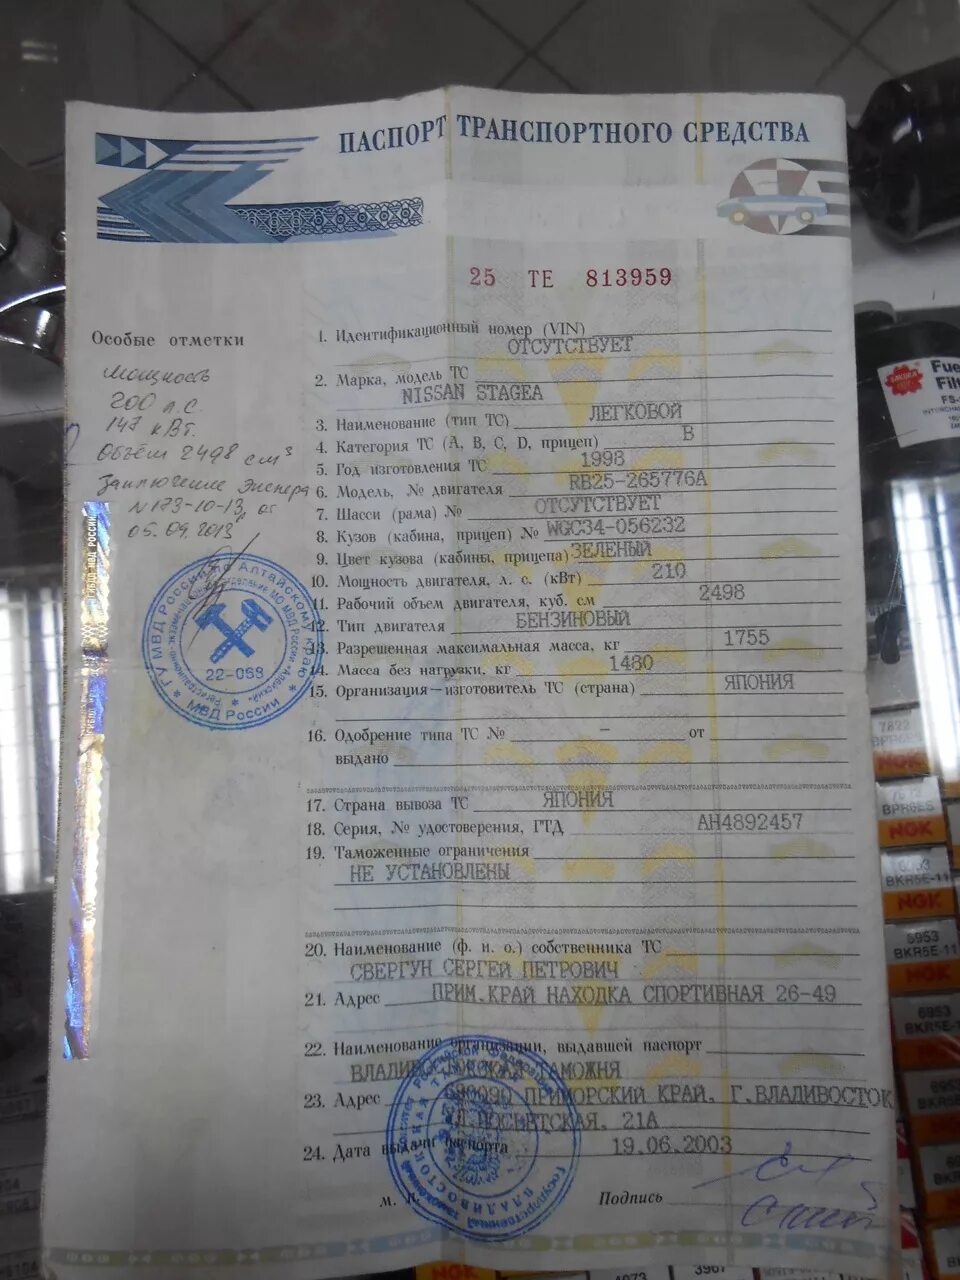 ПАСПОРТ ТРАНСПОРТНОГО СРЕДСТВА
25 ТЕ 813959
Особые отметки
Мощность
200 л.с.
147 кВт.
Объём 2498 см³
Заключение эксперта
N 173-10-13 от
05.09.2013
ГУ МВД России по Алтайскому краю
22-068
МВД России
1. Идентификационный номер (VIN)
ОТСУТСТВУЕТ
2. Марка, модель ТС
NISSAN STAGEA
3. Наименование (тип ТС) ЛЕГКОВОЙ
4. Категория ТС (А, В, С, D, прицеп) В
5. Год изготовления ТС 1998
6. Модель, № двигателя RB25-265776A
7. Шасси (рама) № ОТСУТСТВУЕТ
8. Кузов (кабина, прицеп) № WGC34-056232
9. Цвет кузова (кабины, прицепа) ЗЕЛЕНЫЙ
10. Мощность двигателя, л. с. (кВт) 210
11. Рабочий объем двигателя, куб. см 2498
12. Тип двигателя БЕНЗИНОВЫЙ
13. Разрешенная максимальная масса, кг 1755
14. Масса без нагрузки, кг 1480
15. Организация-изготовитель ТС (страна) ЯПОНИЯ
16. Одобрение типа ТС № – от
выдано
17. Страна вывоза ТС ЯПОНИЯ
18. Серия, № удостоверения, ГТД АН4892457
19. Таможенные ограничения
НЕ УСТАНОВЛЕНЫ
20. Наименование (ф. и. о.) собственника ТС
СВЕРГУН СЕРГЕЙ ПЕТРОВИЧ
21. Адрес ПРИМ.КРАЙ НАХОДКА СПОРТИВНАЯ 26-49
22. Наименование организации, выдавшей паспорт
ВЛАДИВОСТОКСКАЯ ТАМОЖНЯ
23. Адрес 690090 ПРИМОРСКИЙ КРАЙ. Г.ВЛАДИВОСТОК
УЛ.ПОСЬЕТСКАЯ, 21А
24. Дата выдачи паспорта 19.06.2003
м. п. Подпись
SAKURA
Fue
Filt
FS-
7822
BPR6ES
NGK
BPR6ES
NGK
BKR5E-11
NGK
6953
BKR5E-11
NGK
6953
BKR5E-1
NGK
4073
3967